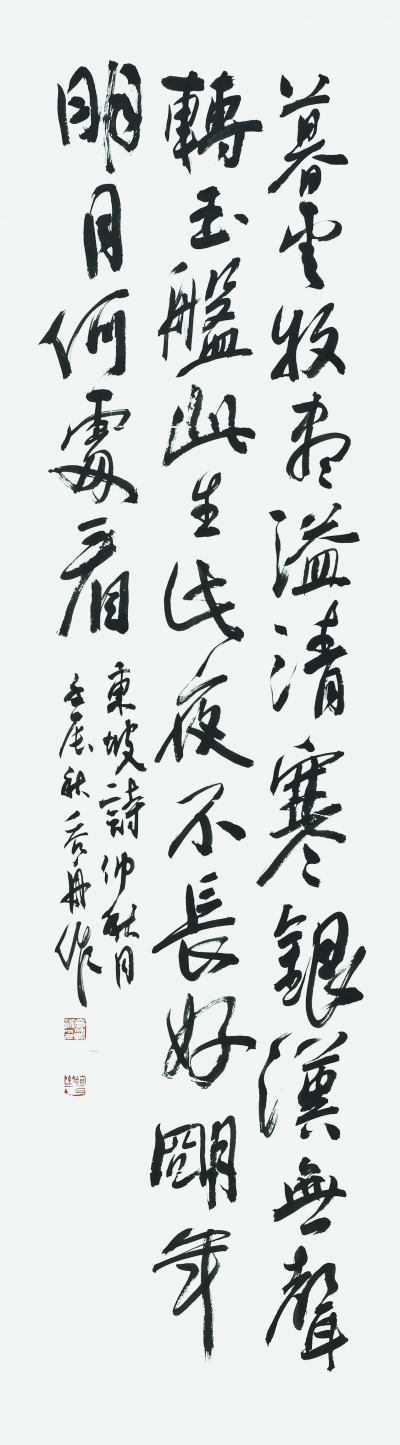 暮雲收盡溢清寒銀漢無聲
轉玉盤此生此夜不長好明年
明月何處看
東坡詩仲秋月
壬辰秋石舟作